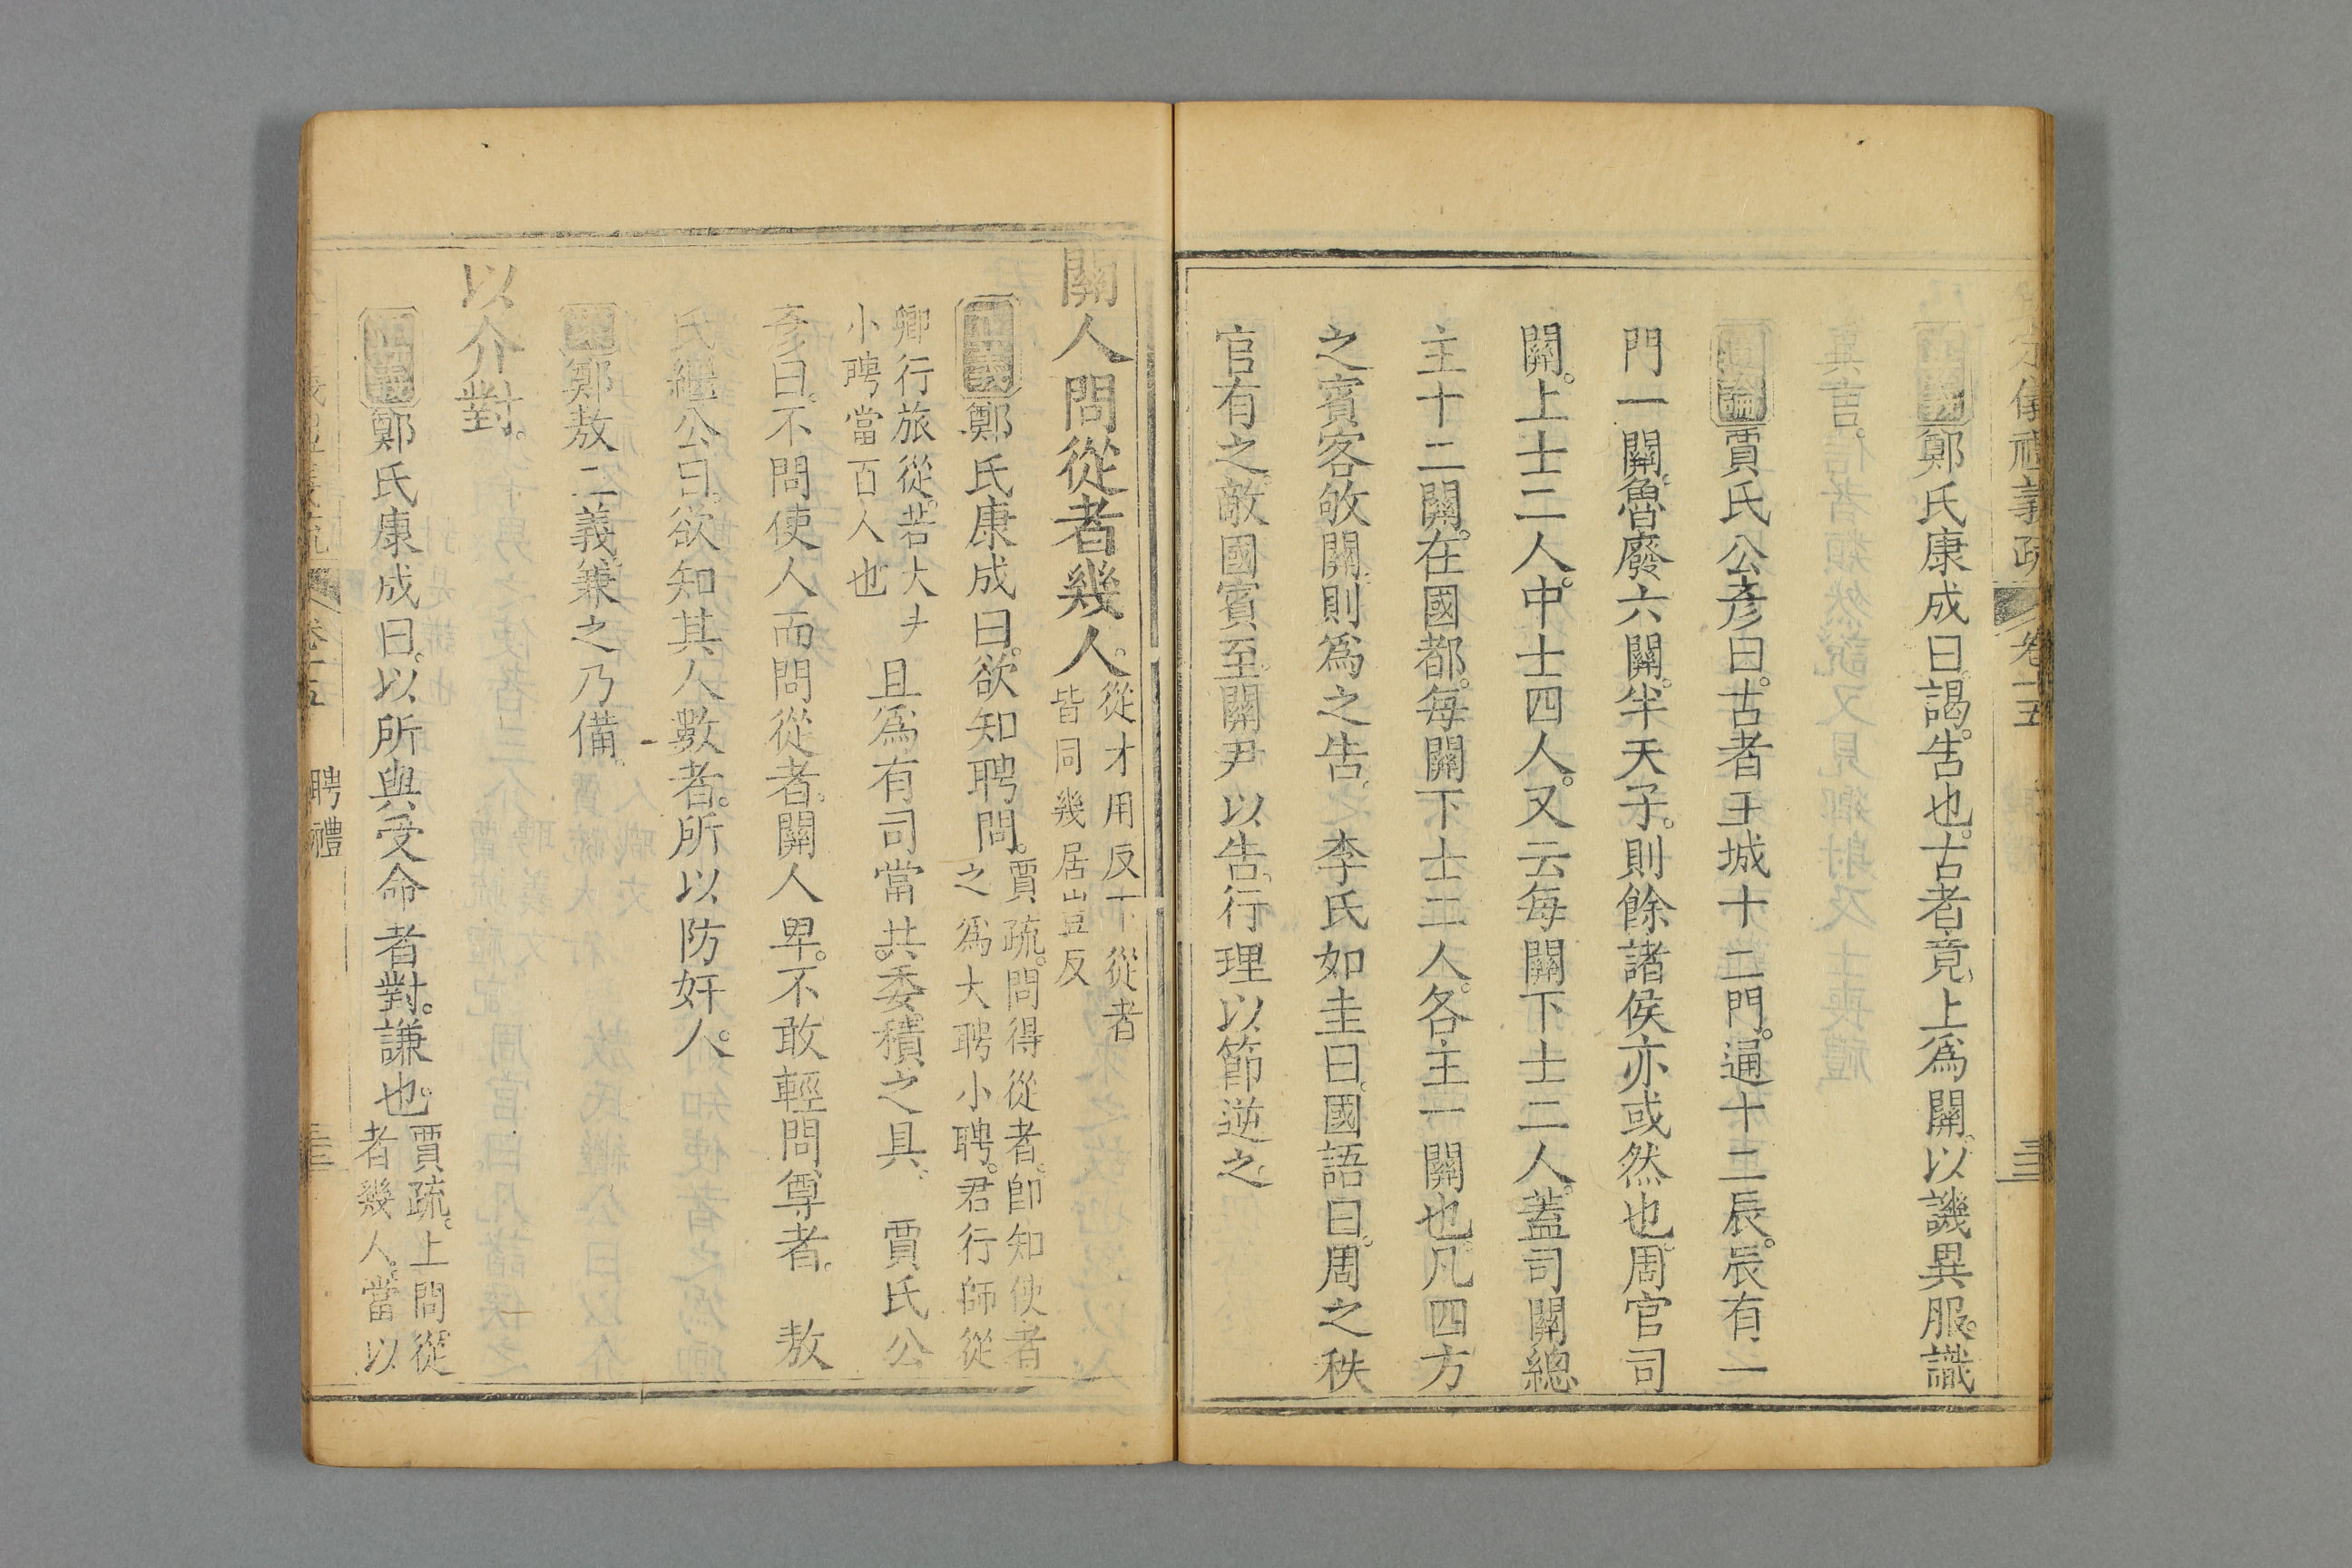 定儀禮義疏 卷十五
鄭氏康成曰。謁。告也。古者竟上爲關。以譏異服。識
賈氏公彥曰。古者王城十二門。通十二辰。辰有一
門一關。魯廢六關。半天子。則餘諸侯亦或然也。周官司
關。上士二人。中士四人。又云每關下士二人。蓋司關總
主十二關。在國都。每關下士二人。各主一關也。凡四方
之賓客敂關。則爲之告。 李氏如圭曰。國語曰。周之秩
官有之。敵國賓至。關尹以告。行理以節逆之。
關人問從者幾人。從才用反下從者
皆同幾居豈反
正義鄭氏康成曰。欲知聘問。賈疏。問得從者。卽知使者
之爲大聘小聘。君行師從
卿行旅從。若大
小聘當百人也
且爲有司當共委積之具。 賈氏公
彥曰。不問使人而問從者。關人卑。不敢輕問尊者。 敖
氏繼公曰。欲知其人數者。所以防奸人。
鄭敖二義兼之乃備
以介對。
正義鄭氏康成曰。以所與受命者對。謙也。賈疏。上問從
者幾人。當以
義疏 卷十五 聘禮